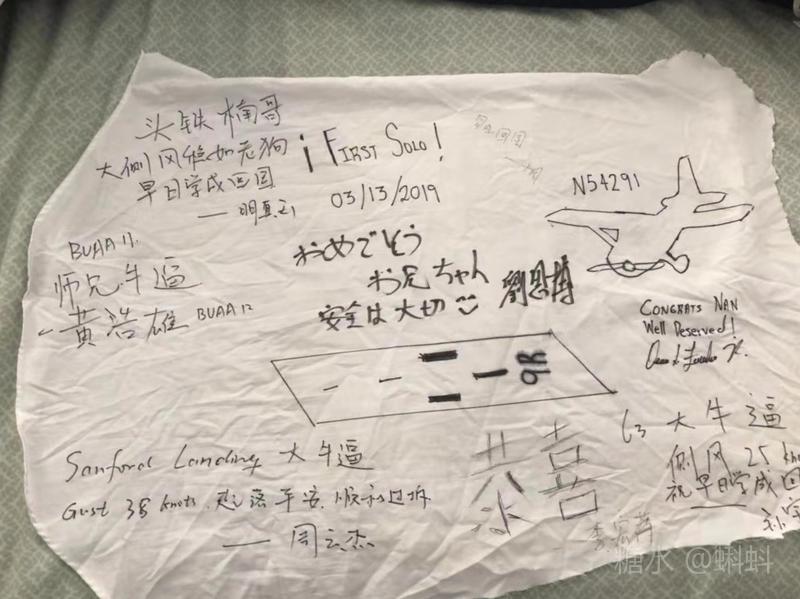 头铁楠哥
大侧风稳如老狗
早日学成回国
¡ FIRST SOLO!
03/13/2019
BUAA 11.
师兄牛逼
黄浩雄 BUAA 12
おめでとう
お兄ちゃん
安全は大切
N54291
CONGRATS NAN
Well Deserved!
9R
Sanford Landing 大牛逼
Gust 38 knots. 起落平安. 顺利过拆
—— 周云杰
恭喜
大牛逼
侧风 25 kn
祝早日学成回
糖水 @蝌蚪